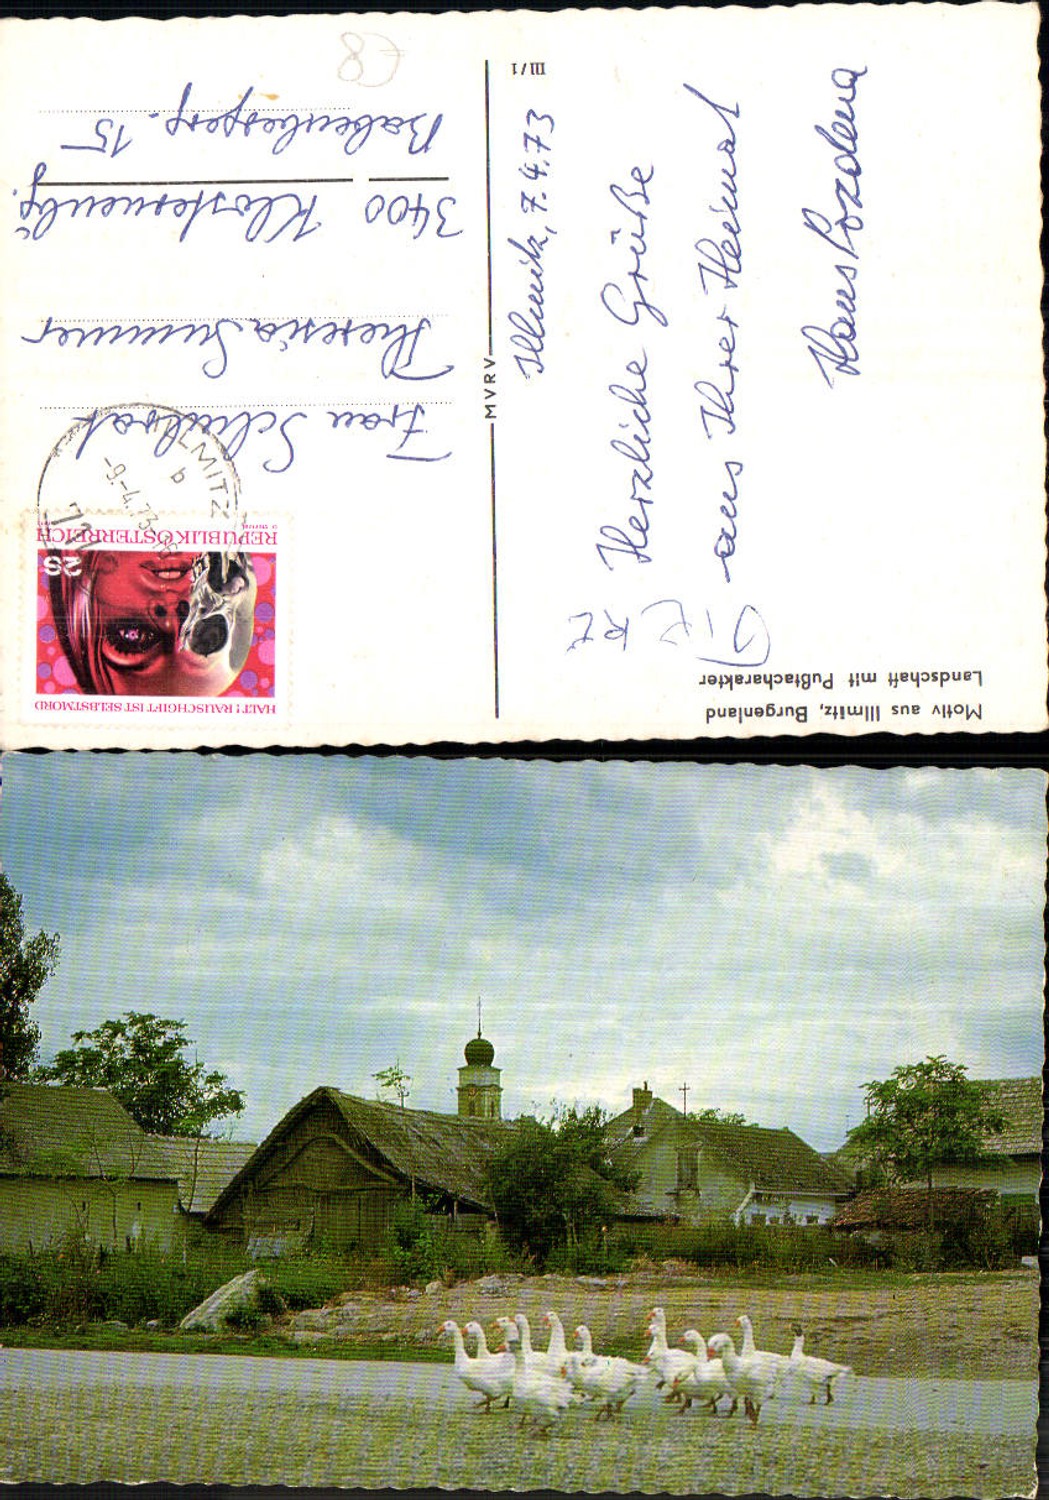 Motiv aus Illmitz, Burgenland
Landschaft mit Pußtacharakter
III/1
Illmitz, 7.4.73
Herzliche Grüße
aus Ihrer Heimat
Hans Pozdena
MVRV
HALT! RAUSCHGIFT IST SELBSTMORD
2S
REPUBLIK ÖSTERREICH
ILLMITZ
b
-9.-4.73
Frau Schulrat
Theresia Summer
3400 Klosterneubg.
Babenbergerg. 15